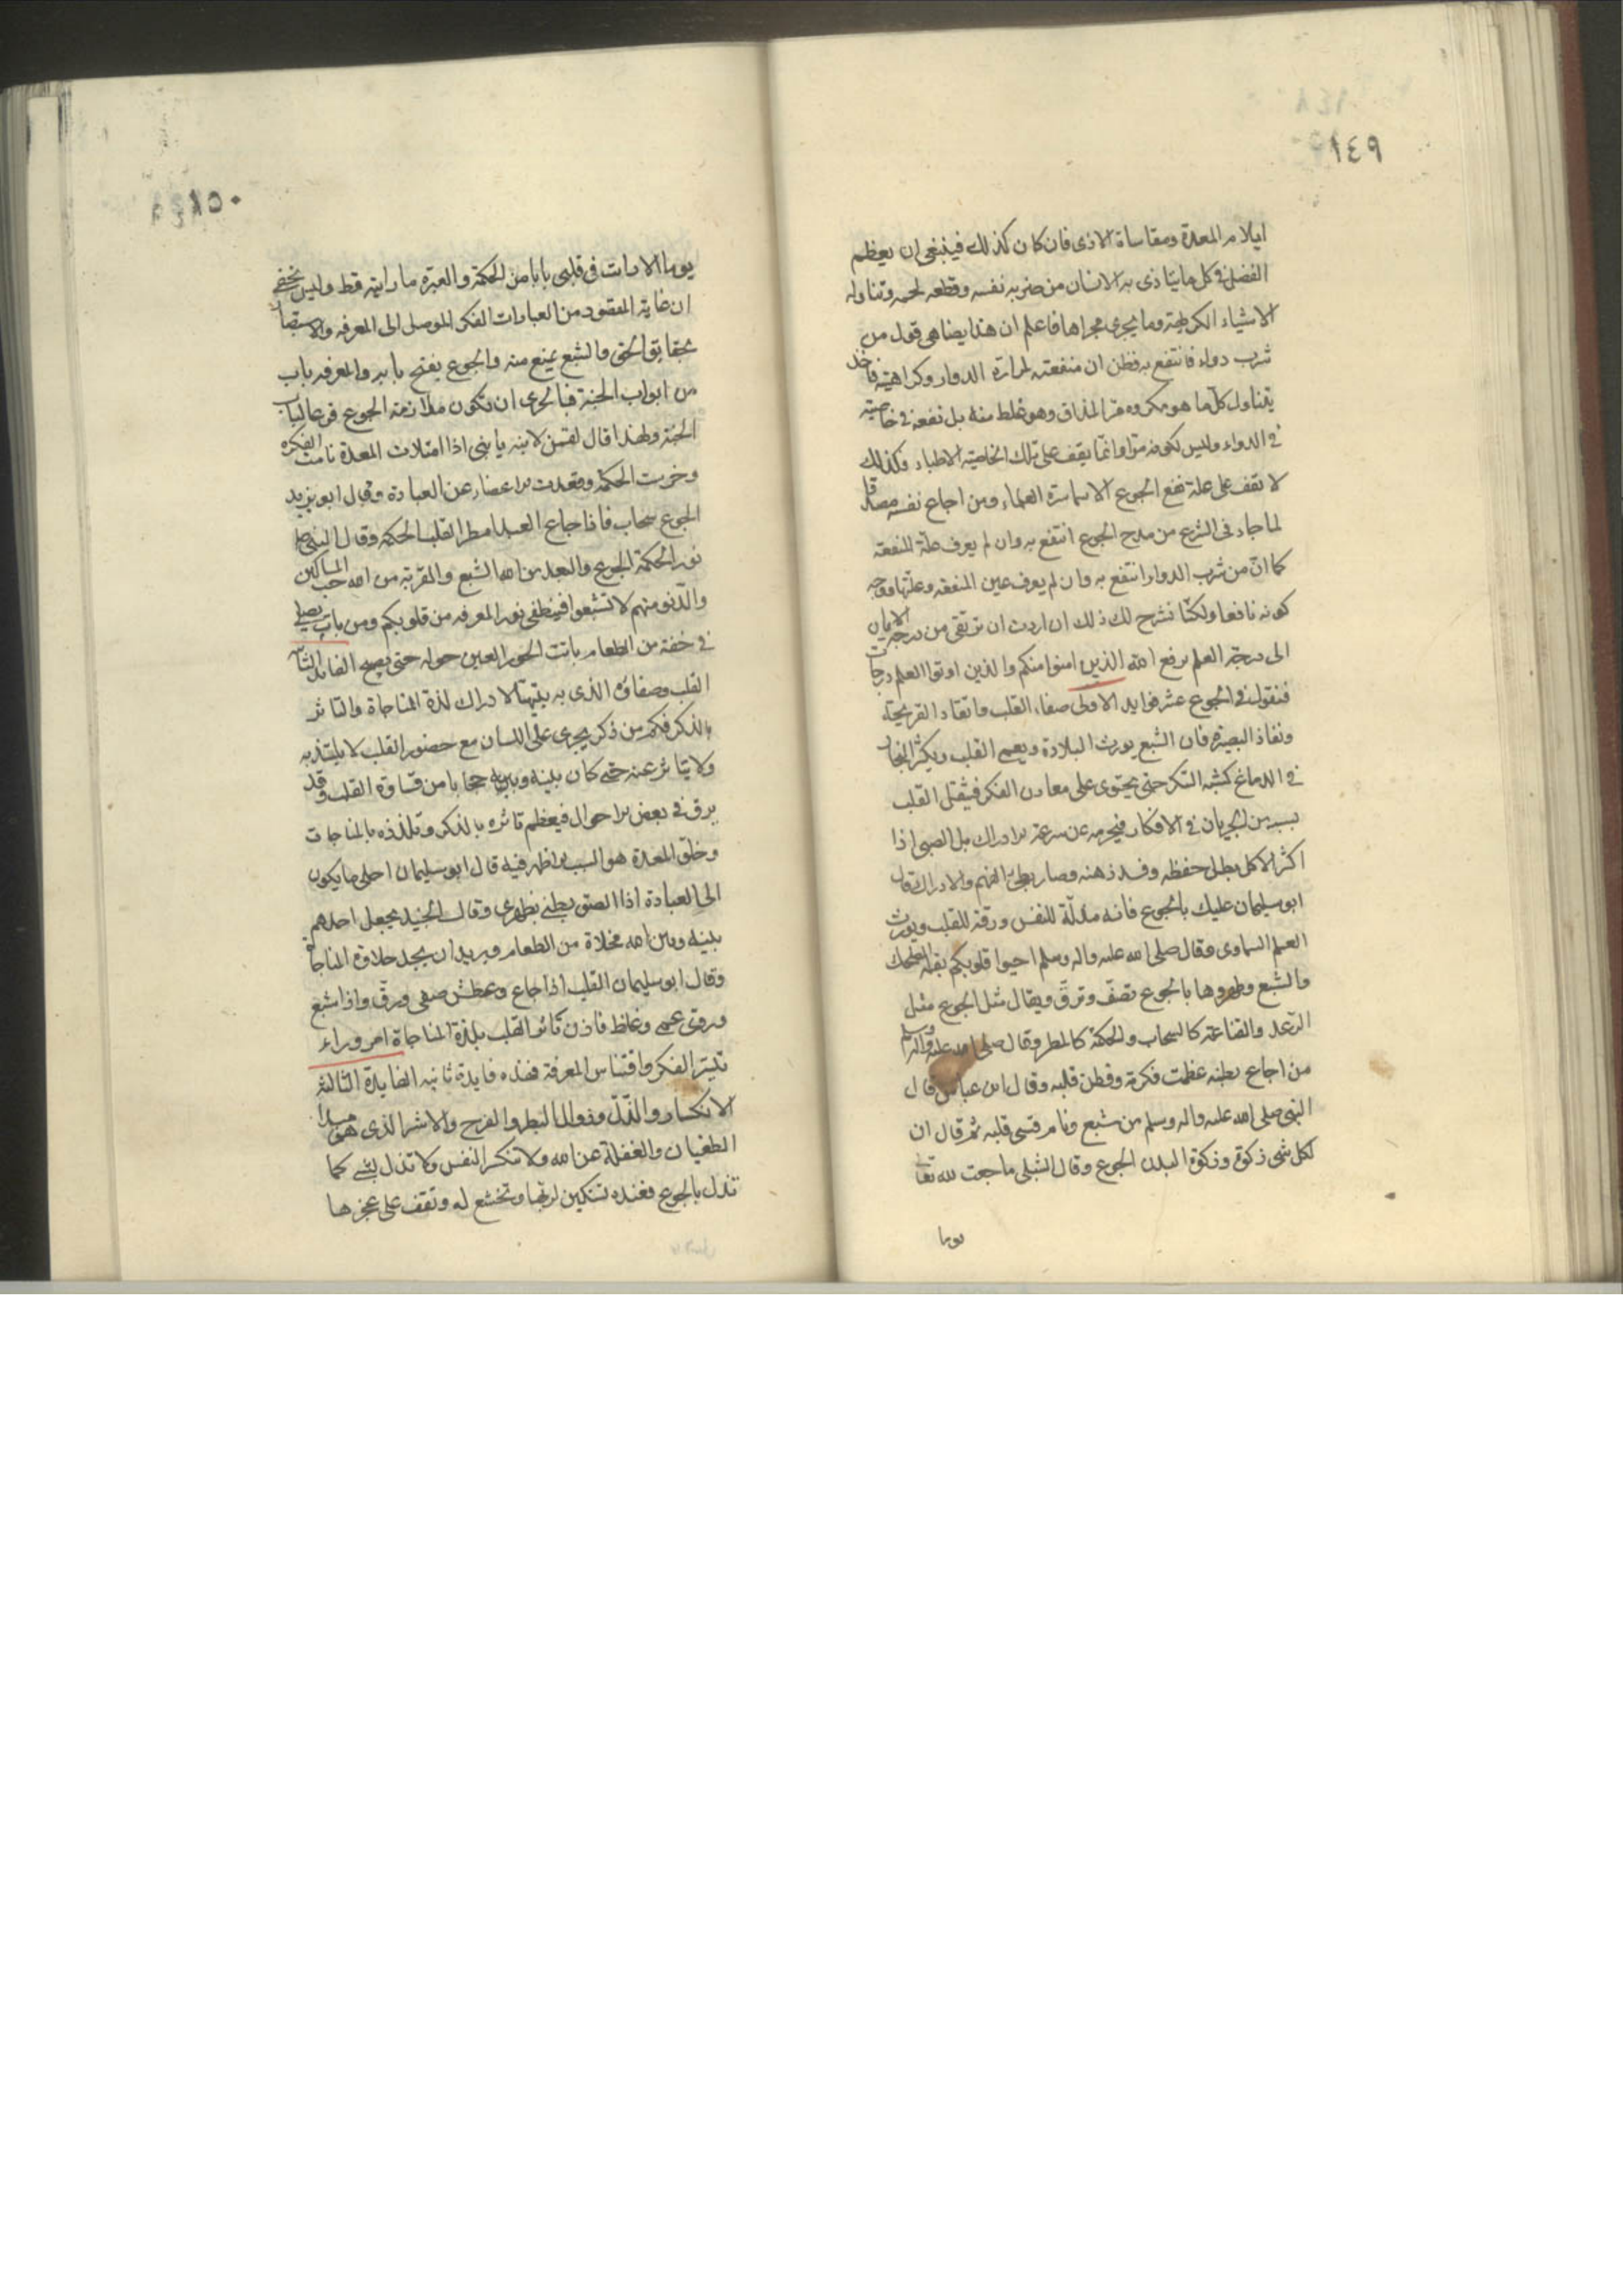 ١٤٩
ايلام المعدة ومقاساة الاذى فان كان كذلك فينبغى ان يعظم
الفضل فى كل ما يتاذى به الانسان من ضربه نفسه وقطعه لحمه وتناوله
الاشياء الكريهة وما يجرى مجراها فاعلم ان هذا يضاهى قول من
شرب دواء فانتفع به فظن ان منفعته لمرارة الدواء وكراهيته فاخذ
يتناول كل ما هو مكروه من المذاق وهو غلط منه بل نفعه فى خاصية
فى الدواء وليس لكونه مرا وانما يقف على تلك الخاصية الاطباء وكذلك
لا يقف على علة نفع الجوع الا سماسرة العلماء ومن اجاع نفسه مصدقا
لما جاء فى الشرع من مدح الجوع انتفع به وان لم يعرف علة المنفعة
كما ان من شرب الدواء انتفع به وان لم يعرف عين المنفعه وعلتها ووجه
كونه نافعا ولكنا نشرح لك ذلك ان اردت ان ترتقى من درجة الايمان
الى درجة العلم يرفع الله الذين امنوا منكم والذين اوتوا العلم درجات
فنقول فى الجوع عشر فوايد الاولى صفاء القلب وايقاد القريحة
ونفاذ البصيرة فان الشبع يورث البلادة ويعمى القلب ويكثر البخار
فى الدماغ كشبه السكر حتى يحتوى على معادن الفكر فيثقل القلب
بسببه من الجريان فى الافكار فيحرمه عن سرعة الادراك بل الصبى اذا
اكثر الاكل بطل حفظه وفسد ذهنه وصار بطئ الفهم والادراك قال
ابو سليمان عليك بالجوع فانه مذلة للنفس ورقة للقلب ويورث
العلم السماوى وقال صلى الله عليه واله وسلم احيوا قلوبكم بقلة الضحك
والشبع وطهروها بالجوع تصف وترق ويقال مثل الجوع مثل
الرعد والقناعة كالسحاب والحكمة كالمطر وقال صلى الله عليه واله وسلم
من اجاع بطنه عظمت فكرته وفطن قلبه وقال ابن عباس قال
النبى صلى الله عليه واله وسلم من شبع ونام قسى قلبه ثم قال ان
لكل شى زكوة وزكوة البدن الجوع وقال الشبلى ما جعت لله تعا
يوما
١٥٠
يوما الا رايت فى قلبى بابا من الحكمة والعبرة ما رايته قط وليس يخفى
ان غاية المقصود من العبادات الفكر الموصل الى المعرفه والاستبصار
بحقايق الحق والشبع يمنع منه والجوع يفتح بابه والمعرفه باب
من ابواب الجنة فبالحرى ان تكون ملازمة الجوع قرعا لباب
الجنة ولهذا قال لقمن لابنه يا بنى اذا امتلات المعدة نامت الفكرة
وخرست الحكمة وقعدت الاعضاء عن العبادة وقال ابو يزيد
الجوع سحاب فاذا جاع العبد امطر القلب الحكمة وقال النبى صلى
نور الحكمة الجوع والبعد من الله الشبع والقربة من الله حب المساكين
والدنو منهم لا تشبعوا فينطفى نور المعرفه من قلوبكم ومن بات يصلى
فى خفة من الطعام باتت الحور العين حوله حتى يصبح الفائدة الثانية
القلب وصفاؤه الذى به يتهيا لادراك لذة المناجاة والتاثر
بالذكر فكم من ذكر يجرى على اللسان مع حضور القلب لا يلتذ به
ولا يتاثر عنه حتى كان بينه وبينه حجابا من قساوة القلب وقد
يرق فى بعض الاحوال فيعظم تاثره بالذكر وتلذذه بالمناجات
وخلو المعدة هو السبب الاظهر فيه قال ابو سليمان احلى ما يكون
الى العبادة اذا التصق بطنى بظهرى وقال الجنيد يجعل احدهم
بينه وبين الله مخلاة من الطعام ويريد ان يجد حلاوة المناجاة
وقال ابو سليمان القلب اذا جاع وعطش صفى ورق واذا شبع
وروى عمى وغلظ فاذن تاثر القلب بلذة المناجاة امر وراء
تيسر الفكر واقتناس المعرفة فهذه فايدة ثانيه الفايدة الثالثه
الانكسار والذل وزوال البطر والفرح والاشر الذى هو مبدا
الطغيان والغفلة عن الله ولا تنكسر النفس ولا تذل لشئ كما
تذل بالجوع فعنده تستكين لربها وتخشع له وتقف على عجزها